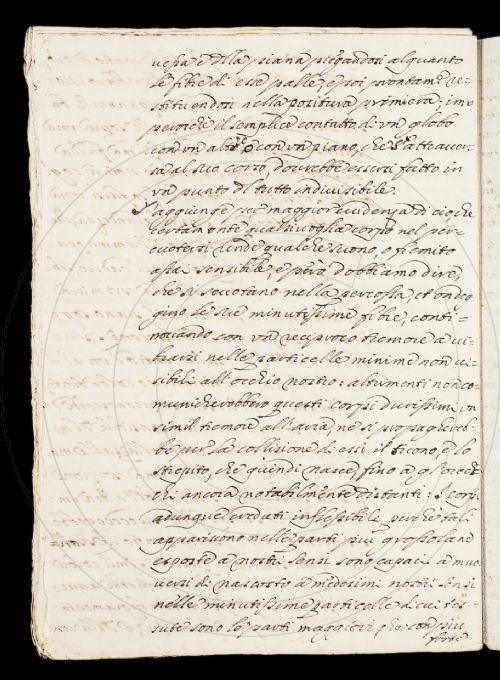 uessa e della piana piegandosi alquanto
le fibre di esse palle, e poi prontamte re=
stituendosi nella positura primiera; im=
percioche il semplice contatto di vn globo
con vn altro, o con vn piano, che s'atteauer=
sa al suo corso, dourebbe essersi fatto in
vn punto del tutto indiuisibile.
S'aggiunge per maggior euidenza di ciò che
certamente qualsiuoglia corpo nel per=
cuotersi rende qualche suono, o fremito
assai sensibile, e però dobbiamo dire,
che si scuotano nella percossa, et ondeg=
gino le sue minutissime fibre, conti=
nouando con vn reciproco tremore a vi=
brarsi nelle particelle minime non vi=
sibili all'occhio nostro: altrimenti non co=
municherebbero questi corpi durissimi vn
simil tremore all'aria, ne si propaghereb=
be per la collisione di essi il suono, e lo
strepito, che quindi nasce, fino a gl'orec=
chi ancora notabilmente distanti: I corpi
adunque creduti inflessibili, perche tali
appariscono nelle parti più grossolane
esposte a nostri sensi sono capaci a muo=
uersi di nascosto a medesimi nostri sensi
nelle minutissime particelle di cui tes=
sute sono le parti maggiori, e con più
forte